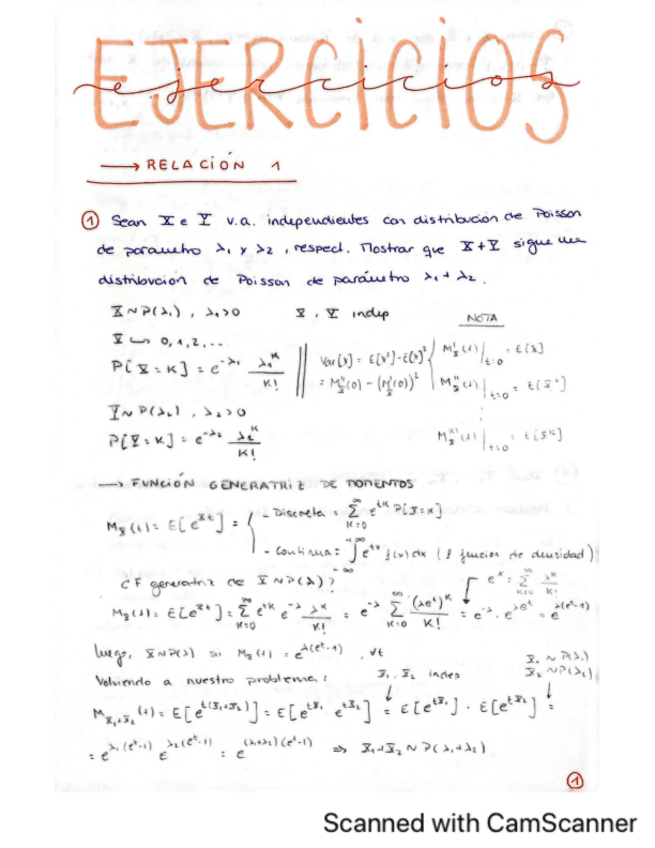 EJERCICIOS
ejercicios
→ RELACIÓN 1
① Sean X e Y v.a. independientes con distribución de Poisson
de parámetro λ₁ y λ₂, respect. Mostrar que X+Y sigue una
distribución de Poisson de parámetro λ₁+λ₂.
X~P(λ₁), λ₁>0 X, Y indep NOTA
X ↪ 0,1,2,...
P[X=K] = e^{-λ₁} λ₁^K/K! || Var[X] = E[X²]-E[X]² = M''_X(0) - (M'_X(0))² { M'_X(t)|_{t=0} = E[X]
M''_X(t)|_{t=0} = E[X²]
Y~P(λ₂), λ₂>0
P[Y=K] = e^{-λ₂} λ₂^K/K! M^{K)}_X(t)|_{t=0} = E[X^K]
→ FUNCIÓN GENERATRIZ DE MOMENTOS
M_X(t) = E[e^{Xt}] = { - Discreta = ∑_{K=0}^{∞} e^{tK} P[X=K]
- Continua = ∫_{-∞}^{+∞} e^{tx} f(x)dx (f función de densidad)
¿F generatriz de X~P(λ)? e^x = ∑_{K=0}^{∞} λ^K/K!
M_X(t) = E[e^{Xt}] = ∑_{K=0}^{∞} e^{tK} e^{-λ} λ^K/K! = e^{-λ} ∑_{K=0}^{∞} (λe^t)^K/K! = e^{-λ} · e^{λe^t} = e^{λ(e^t-1)}
luego, X~P(λ) si M_X(t) = e^{λ(e^t-1)}, ∀t
Volviendo a nuestro problema: X₁, X₂ indep X₁~P(λ₁) X₂~P(λ₂)
M_{X₁+X₂}(t) = E[e^{t(X₁+X₂)}] = E[e^{tX₁} · e^{tX₂}] = E[e^{tX₁}] · E[e^{tX₂}] =
= e^{λ₁(e^t-1)} e^{λ₂(e^t-1)} = e^{(λ₁+λ₂)(e^t-1)} ⇒ X₁+X₂ ~ P(λ₁+λ₂)
①
Scanned with CamScanner